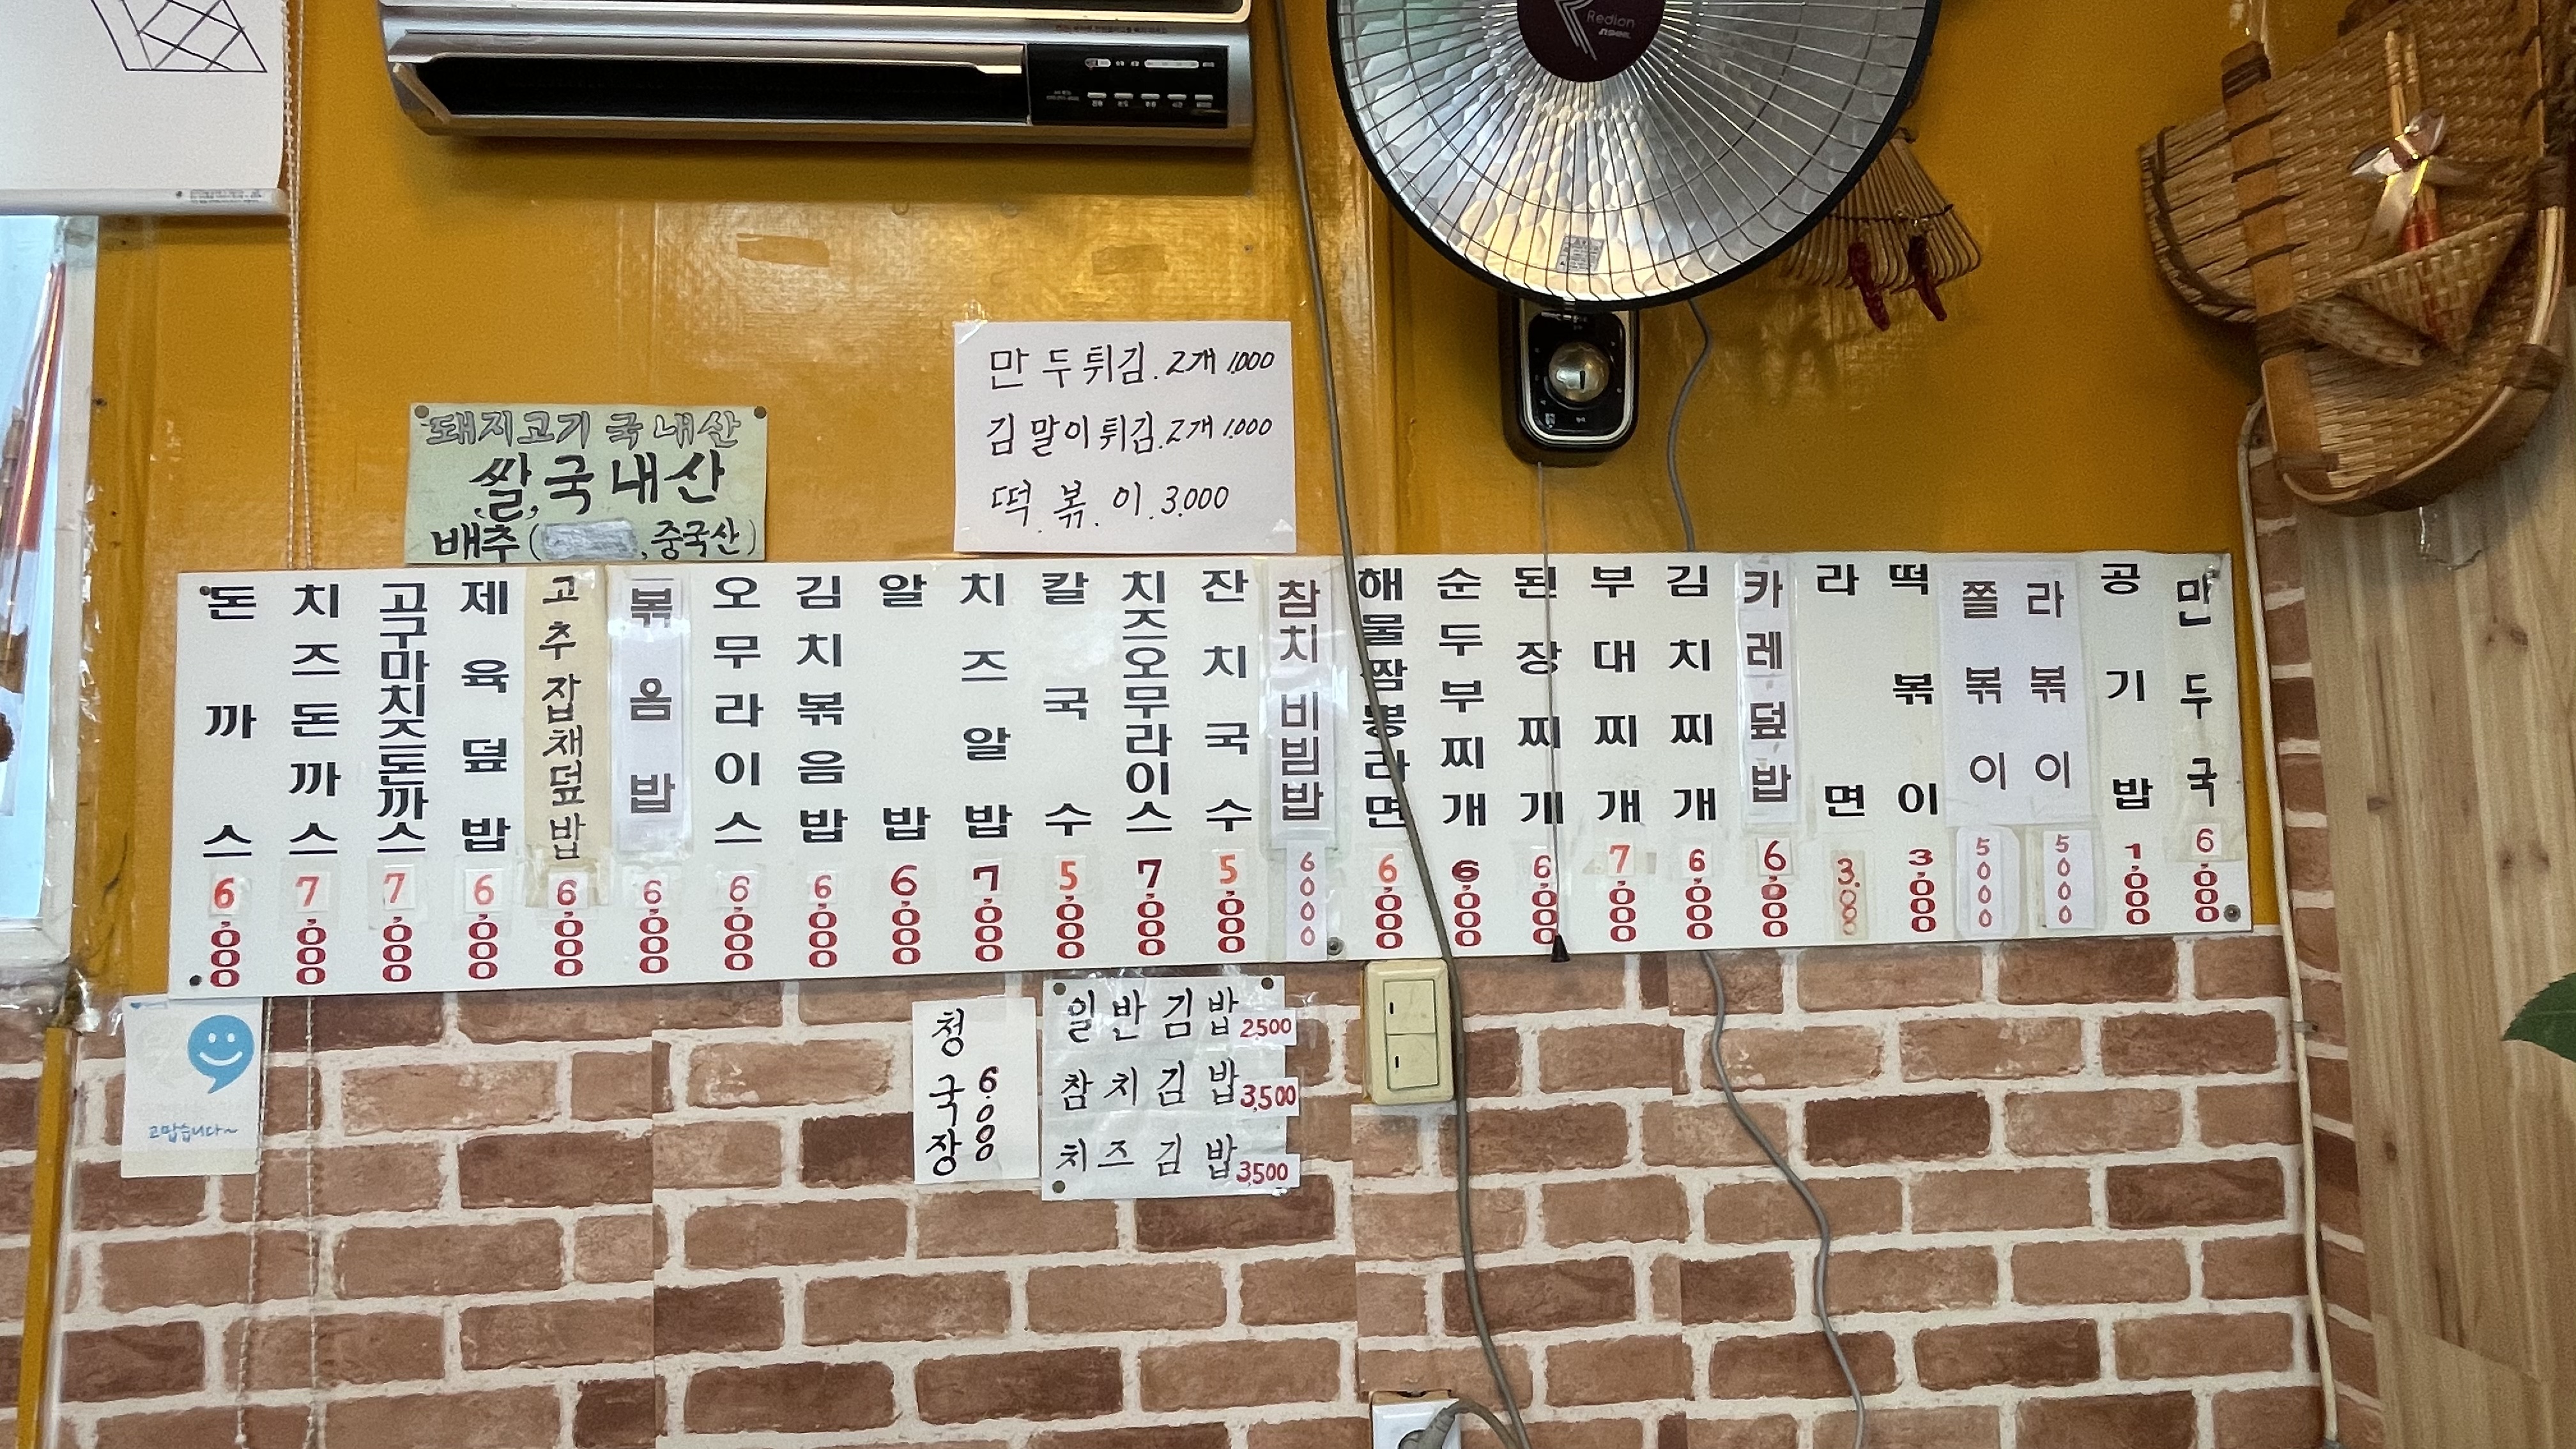 Redion
SHINIL
만두튀김. 2개 1.000
김말이튀김. 2개 1.000
떡.볶.이.3.000
돼지고기 국내산
쌀,국내산
배추( ,중국산)
돈까스 6,000
치즈돈까스 7,000
고구마치즈돈까스 7,000
제육덮밥 6,000
고추잡채덮밥 6,000
볶음밥 6,000
오무라이스 6,000
김치볶음밥 6,000
알밥 6,000
치즈알밥 7,000
칼국수 5,000
치즈오무라이스 7,000
잔치국수 5,000
참치비빔밥 6000
해물짬뽕라면 6,000
순두부찌개 6,000
된장찌개 6,000
부대찌개 7,000
김치찌개 6,000
카레덮밥 6,000
라면
떡볶이 3,000
쫄볶이 5000
라볶이 5000
공기밥 1,000
만두국 6,000
고맙습니다~
청국장 6.000
일반김밥 2,500
참치김밥 3,500
치즈김밥 3,500